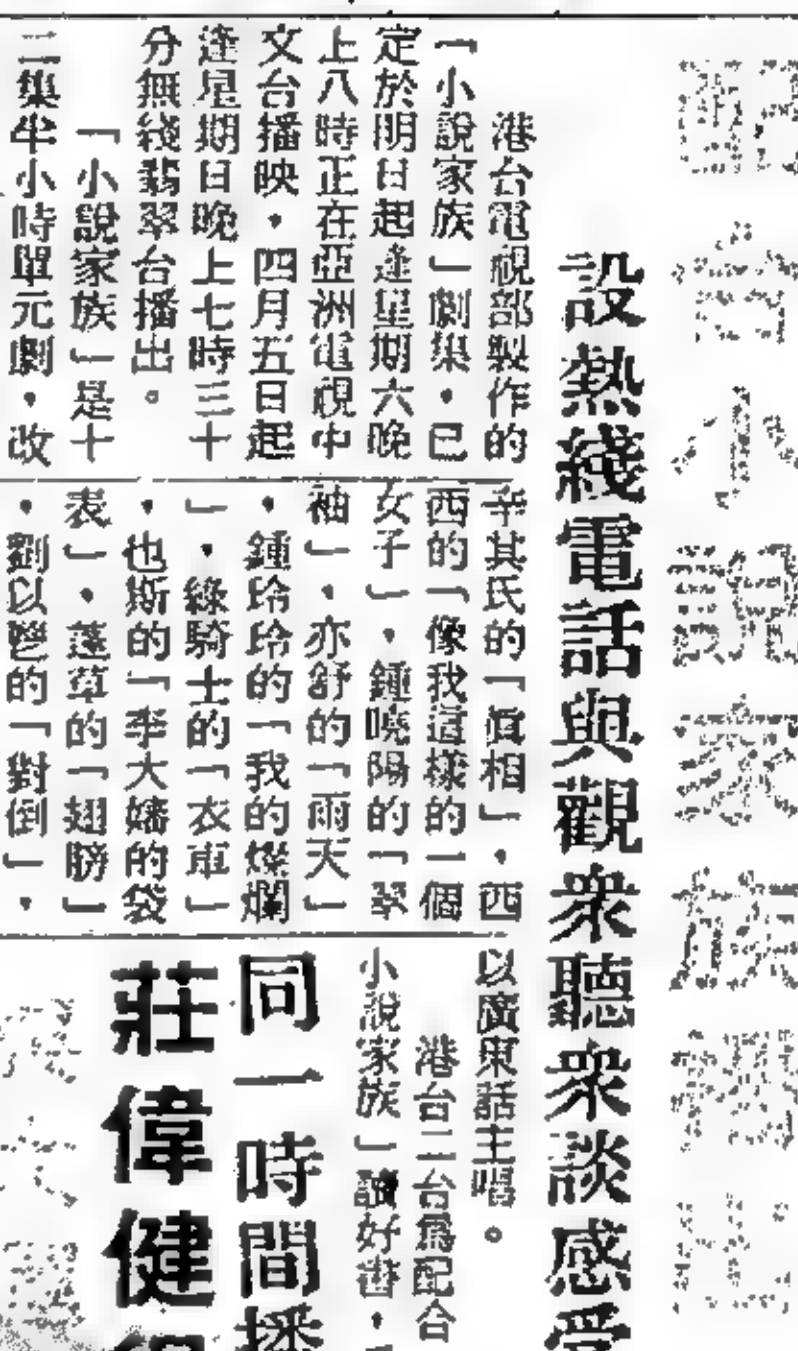 小說家族
設熱綫電話與觀衆聽衆談感受
港台電視部製作的
「小說家族」劇集,已
定於明日起逢星期六晚
上八時正在亞洲電視中
文台播映,四月五日起
逢星期日晚上七時三十
分無綫翡翠台播出。
「小說家族」是十
二集半小時單元劇,改
辛其氏的「眞相」,西
西的「像我這樣的一個
女子」,鍾曉陽的「翠
袖」,亦舒的「雨天」
,鍾玲玲的「我的燦爛
」,綠騎士的「衣車」
,也斯的「李大嬸的袋
表」,蓬草的「翅膀」
,劉以鬯的「對倒」,
以廣東話主唱。
港台二台爲配合
小說家族」讀好書,
同一時間播
莊偉健